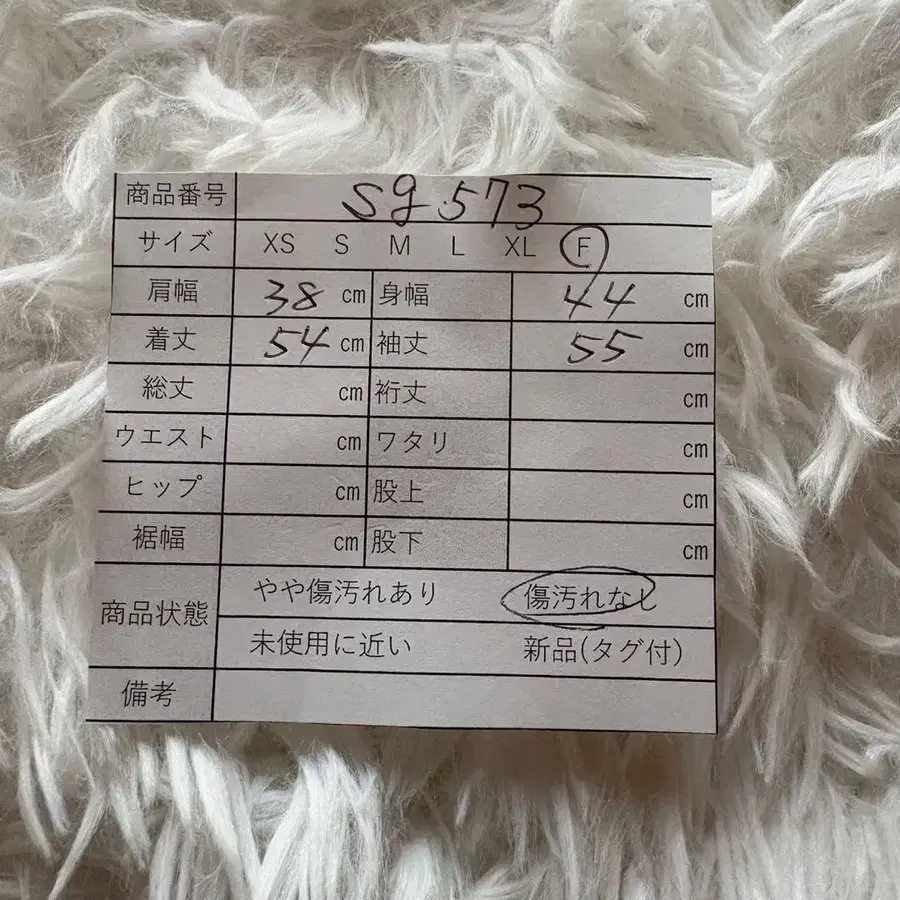 商品番号 sg.573
サイズ XS S M L XL F
肩幅 38 cm 身幅 44 cm
着丈 54 cm 袖丈 55 cm
総丈 cm 裄丈 cm
ウエスト cm ワタリ cm
ヒップ cm 股上 cm
裾幅 cm 股下 cm
商品状態 やや傷汚れあり 傷汚れなし
未使用に近い 新品(タグ付)
備考